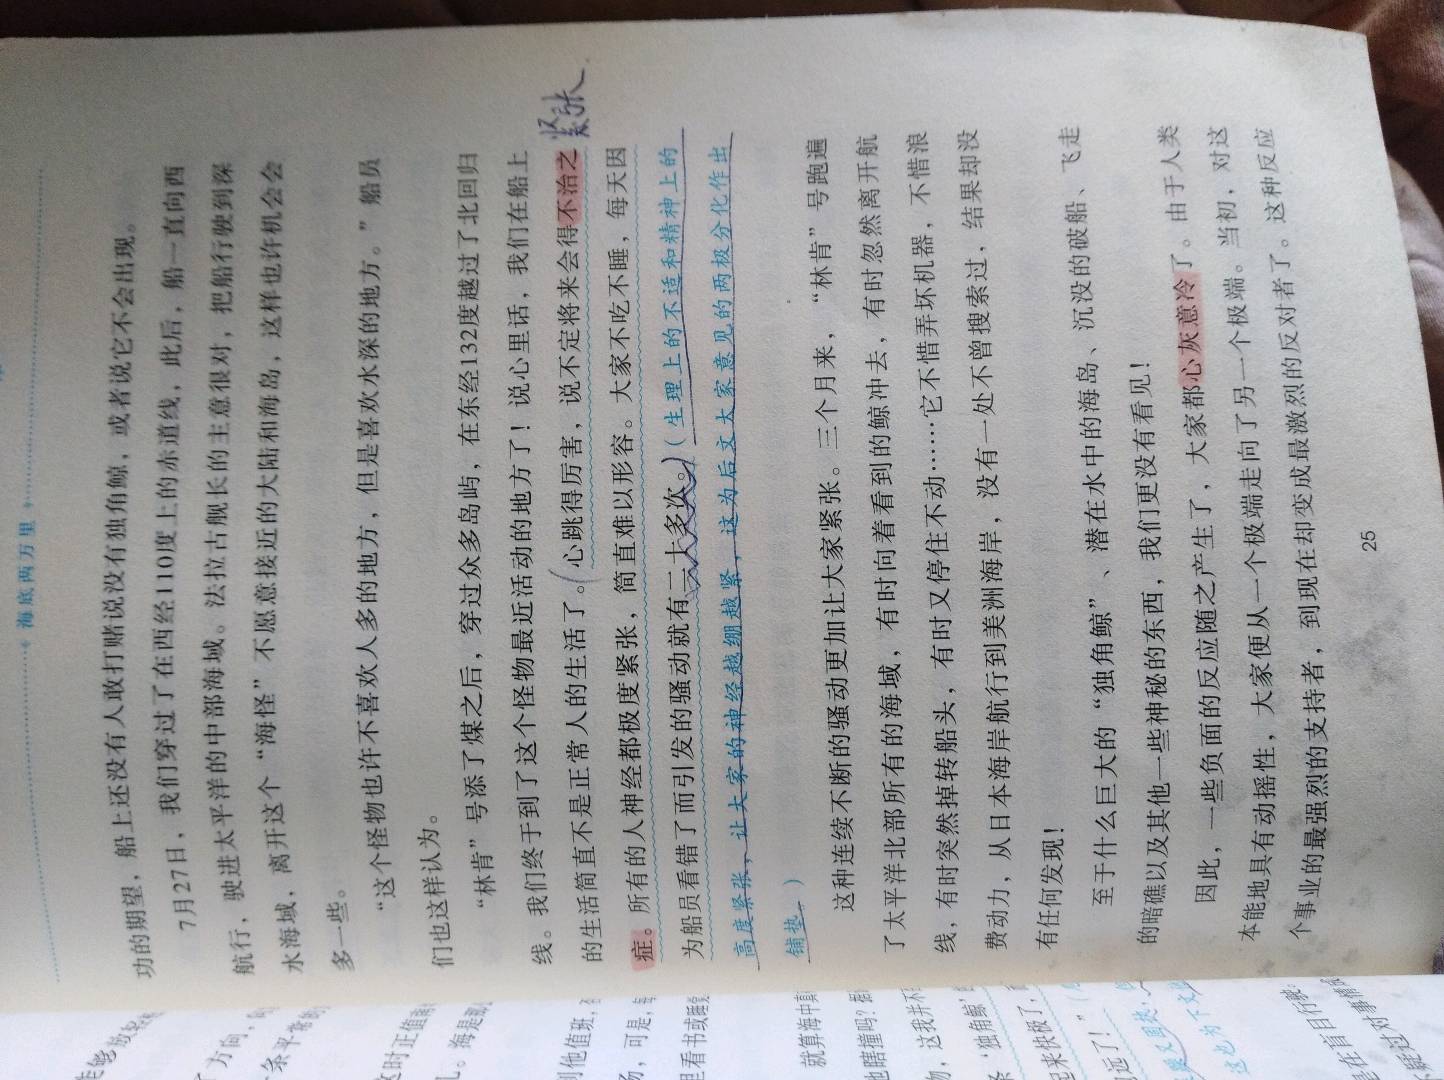 海底两万里
功的期望，船上还没有人敢打赌说没有独角鲸，或者说它不会出现。
7月27日，我们穿过了在西经110度上的赤道线，此后，船一直向西
航行，驶进太平洋的中部海域。法拉古舰长的主意很对，把船行驶到深
水海域，离开这个“海怪”不愿意接近的大陆和海岛，这样也许机会会
多一些。
“这个怪物也许不喜欢人多的地方，但是喜欢水深的地方。”船员
们也这样认为。
“林肯”号添了煤之后，穿过众多岛屿，在东经132度越过了北回归
线。我们终于到了这个怪物最近活动的地方了！说心里话，我们在船上
的生活简直不是正常人的生活了。心跳得厉害，说不定将来会得不治之
紧张
症。所有的人神经都极度紧张，简直难以形容。大家不吃不睡，每天因
为船员看错了而引发的骚动就有二十多次。（生理上的不适和精神上的
高度紧张，让大家的神经越绷越紧，这为后文大家意见的两极分化作出
铺垫。）
这种连续不断的骚动更加让大家紧张。三个月来，“林肯”号跑遍
了太平洋北部所有的海域，有时向着看到的鲸冲去，有时忽然离开航
线，有时突然掉转船头，有时又停住不动……它不惜弄坏机器，不惜浪
费动力，从日本海岸航行到美洲海岸，没有一处不曾搜索过，结果却没
有任何发现！
至于什么巨大的“独角鲸”、潜在水中的海岛、沉没的破船、飞走
的暗礁以及其他一些神秘的东西，我们更没有看见！
因此，一些负面的反应随之产生了，大家都心灰意冷了。由于人类
本能地具有动摇性，大家便从一个极端走向了另一个极端。当初，对这
个事业的最强烈的支持者，到现在却变成最激烈的反对者了。这种反应
25
方向，向
条平常的
这时正值南
。海是那
到他值班，
，可是，每
里看书或睡觉
就算海中真
也瞎撞吗？
物，这我并不
‘独角鲸’
起来快极了，
远了！”
这也为下文
是在盲目行驶